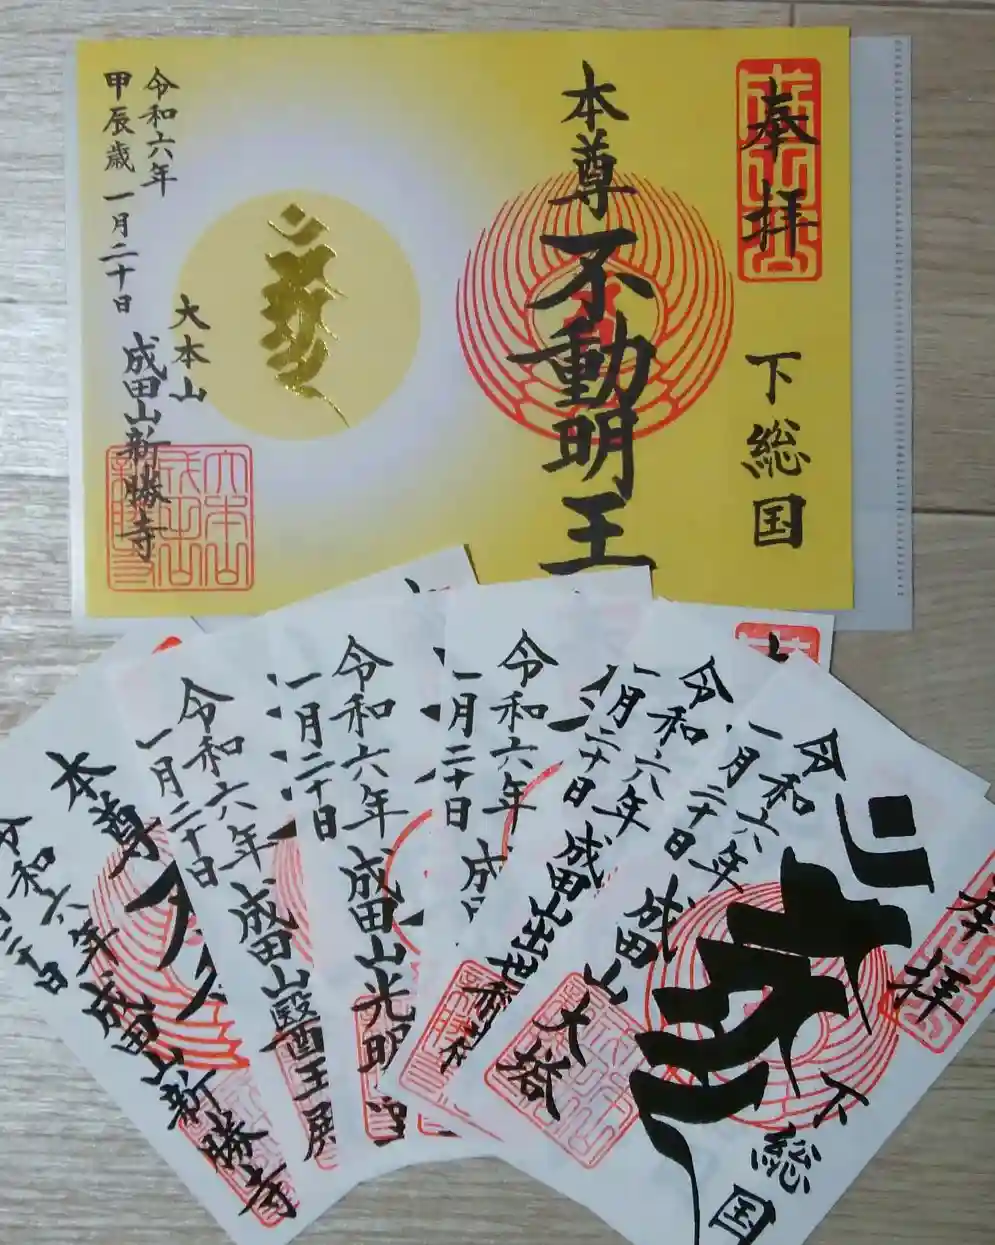 奉拝
下総国
本尊 不動明王
大本山
成田山新勝寺
令和六年
甲辰歳 一月二十日
奉拝
下総国
令和六年
一月二十日
成田山
大塔
令和六年
一月二十日
成田山出世稲荷社
令和六年
一月二十日
成田
令和六年
一月二十日
成田山光明堂
令和六年
一月二十日
成田山醫王殿
本尊
令和六年
成田山新勝寺